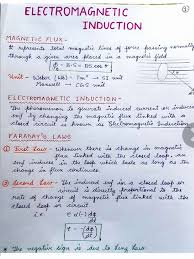 ELECTROMAGNETIC
INDUCTION
MAGNETIC FLUX-
It represents total magnetic lines of force passing normally
through a given area placed in a magnetic field
ϕ = B·S = BS cos θ
Unit - Weber (Wb) = Tm² → SI unit
Maxwell → CGS unit
ELECTROMAGNETIC INDUCTION-
The phenomenon to generate induced current or induced
emf by changing the magnetic flux linked with a
closed circuit is known as Electromagnetic Induction
FARADAY'S LAWS
① First Law - Whenever there is change in magnetic
flux linked with the closed loop, an
emf induces in the loop which lasts as long as the
change in flux continues
② Second Law - The induced emf in a closed loop or
circuit is directly proportional to the
rate of change of magnetic flux linked with the
closed loop or circuit
i.e. e α (-) dϕ/dt
e = - dϕ/dt
* The negative sign is due to Lenz Law